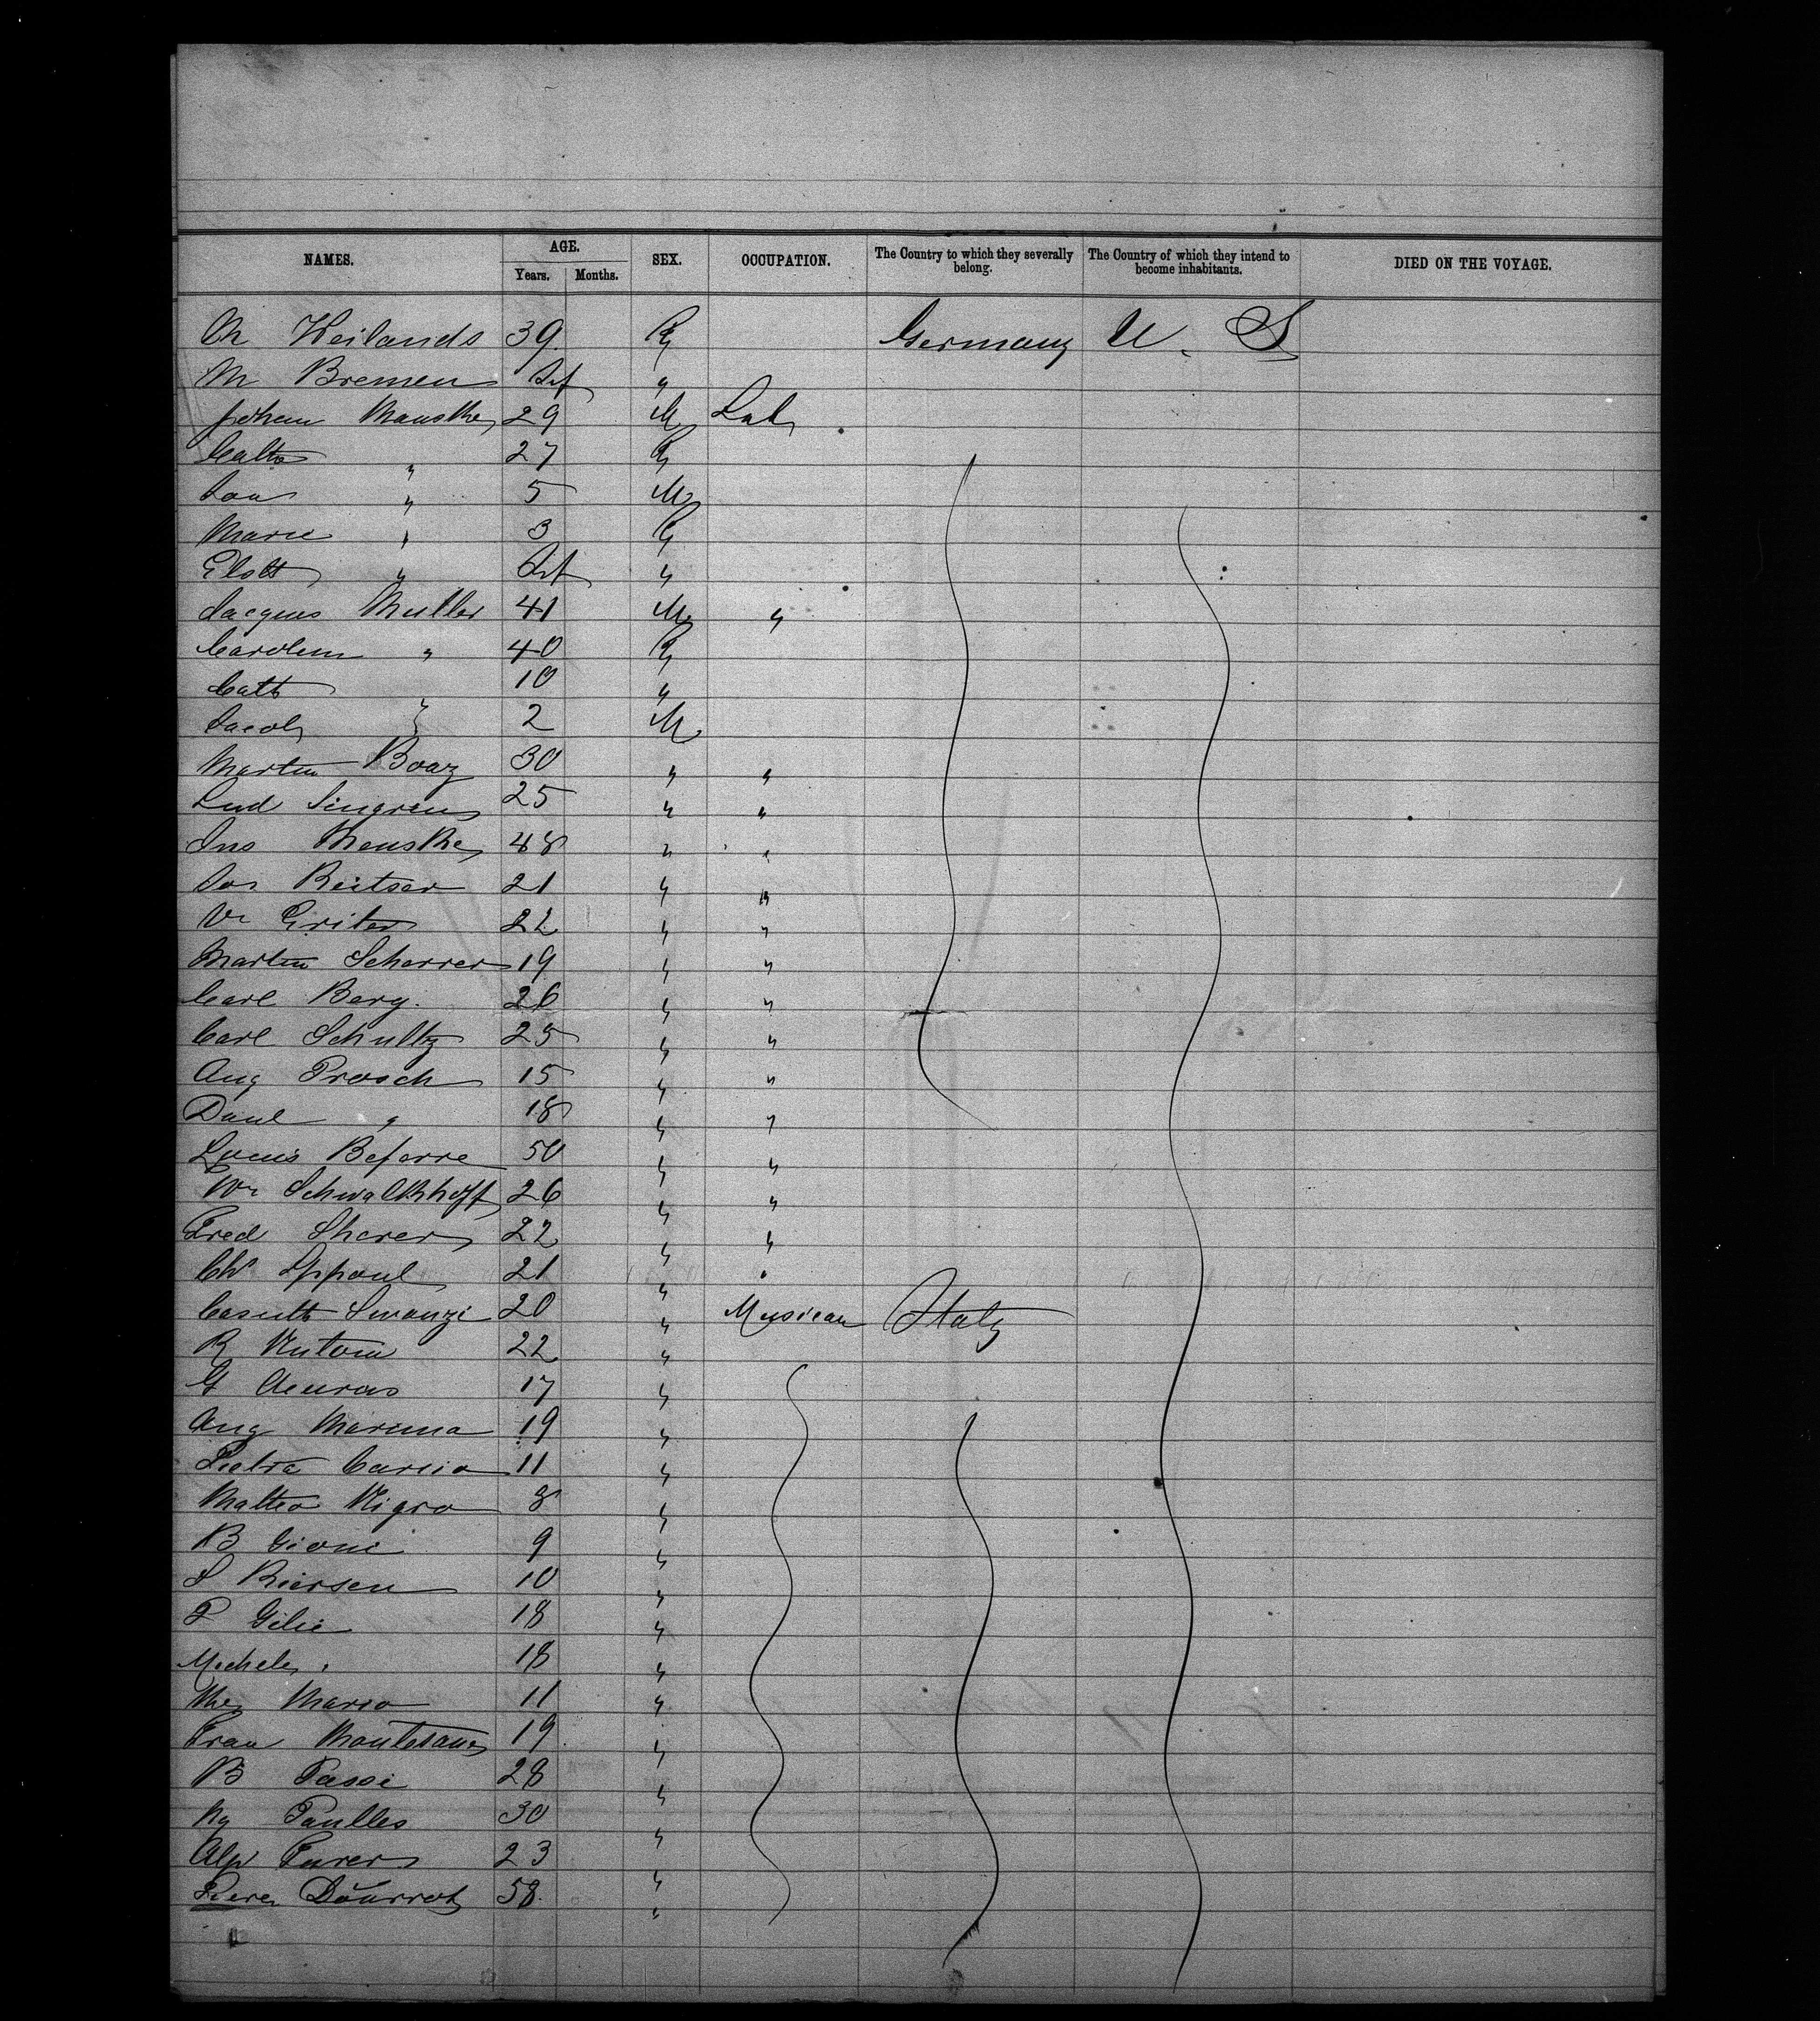 NAMES. AGE. SEX. OCCUPATION. The Country to which they severally belong. The Country of which they intend to become inhabitants. DIED ON THE VOYAGE.
Years. Months.
Weilands 39 Germany U. S
M Bremen Inf "
Johan Manske 29 M Lab
" 27
" 5 M
Marie " 3
" Inf "
Jacques Muller 41 M "
Carolin " 40
Cath " 10 "
Jacob " 2 M
Martin Boaz 30 " "
Lud 25 " "
Jno Menske 48 " "
Jos Reitser 21 " "
Griter 22 " "
Martin Scherrer 19 " "
Carl Berg. 26 " "
Carl Schultz 25 " "
Aug Prosch 15 " "
Daul " 18 " "
Louis Beferre 50 " "
Wm Schwalkhoff 26 " "
Fred Sherer 22 " "
Chs Appoul 21 " "
Swanzi 20 " Musican Italy
R 22 "
G 17 "
Aug Marina 19 "
Pietra 11 "
Matteo Nigro 8 "
B Gioni 9 "
S Riersen 10 "
P Gilie 18 "
Michele " 18 "
Mario 11 "
Fran Montesano 19 "
B Passi 28 "
Ng Paulles 30 "
Alp Furer 23 "
58 "